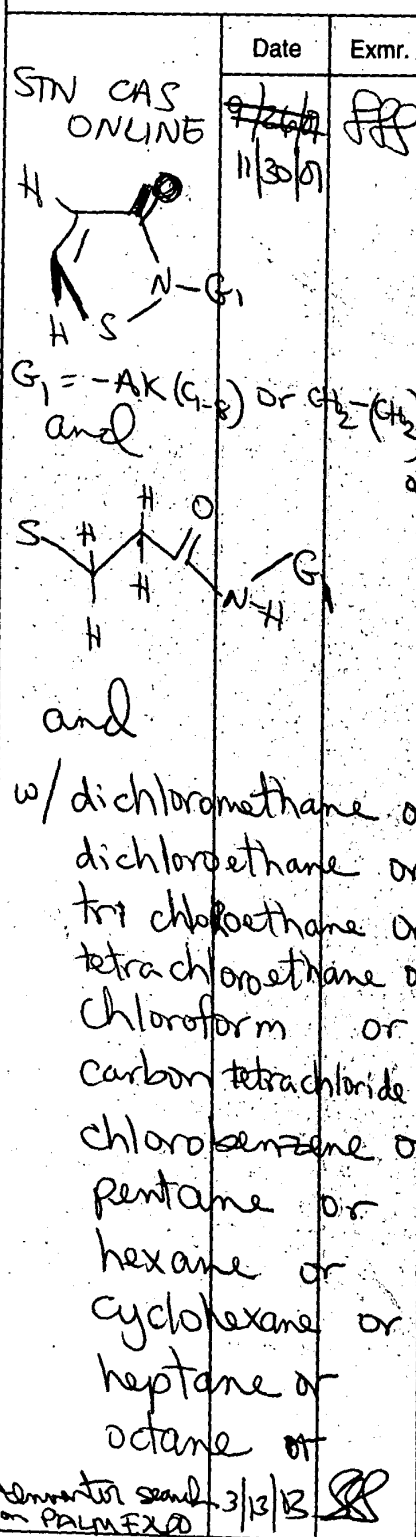 Date Exmr.
STN CAS
ONLINE
11/30/01
H
O
N-G1
H S
G1 = -AK (C1-8) or CH2-(CH2)
and
H O
S H
H
N-H G1
H
and
w/ dichloromethane o
dichloroethane or
tri chloroethane o
tetrachloroethane o
chloroform or
carbon tetrachloride
chlorobenzene o
pentane or
hexane or
cyclohexane or
heptane or
octane or
search 3/13/13
on PALM EXPO